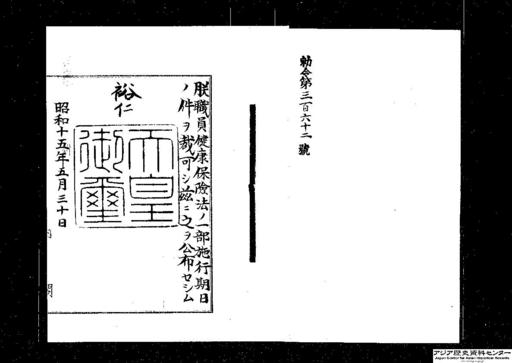 勅令第三百六十二號
朕職員健康保險法ノ一部施行期日
ノ件ヲ裁可シ茲ニ之ヲ公布セシム
裕仁
天皇御璽
昭和十五年五月三十日
アジア歴史資料センター
Japan Center for Asian Historical Records